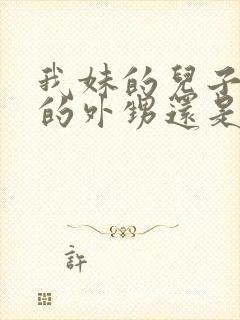 我妹的兒子
的外甥還是
許